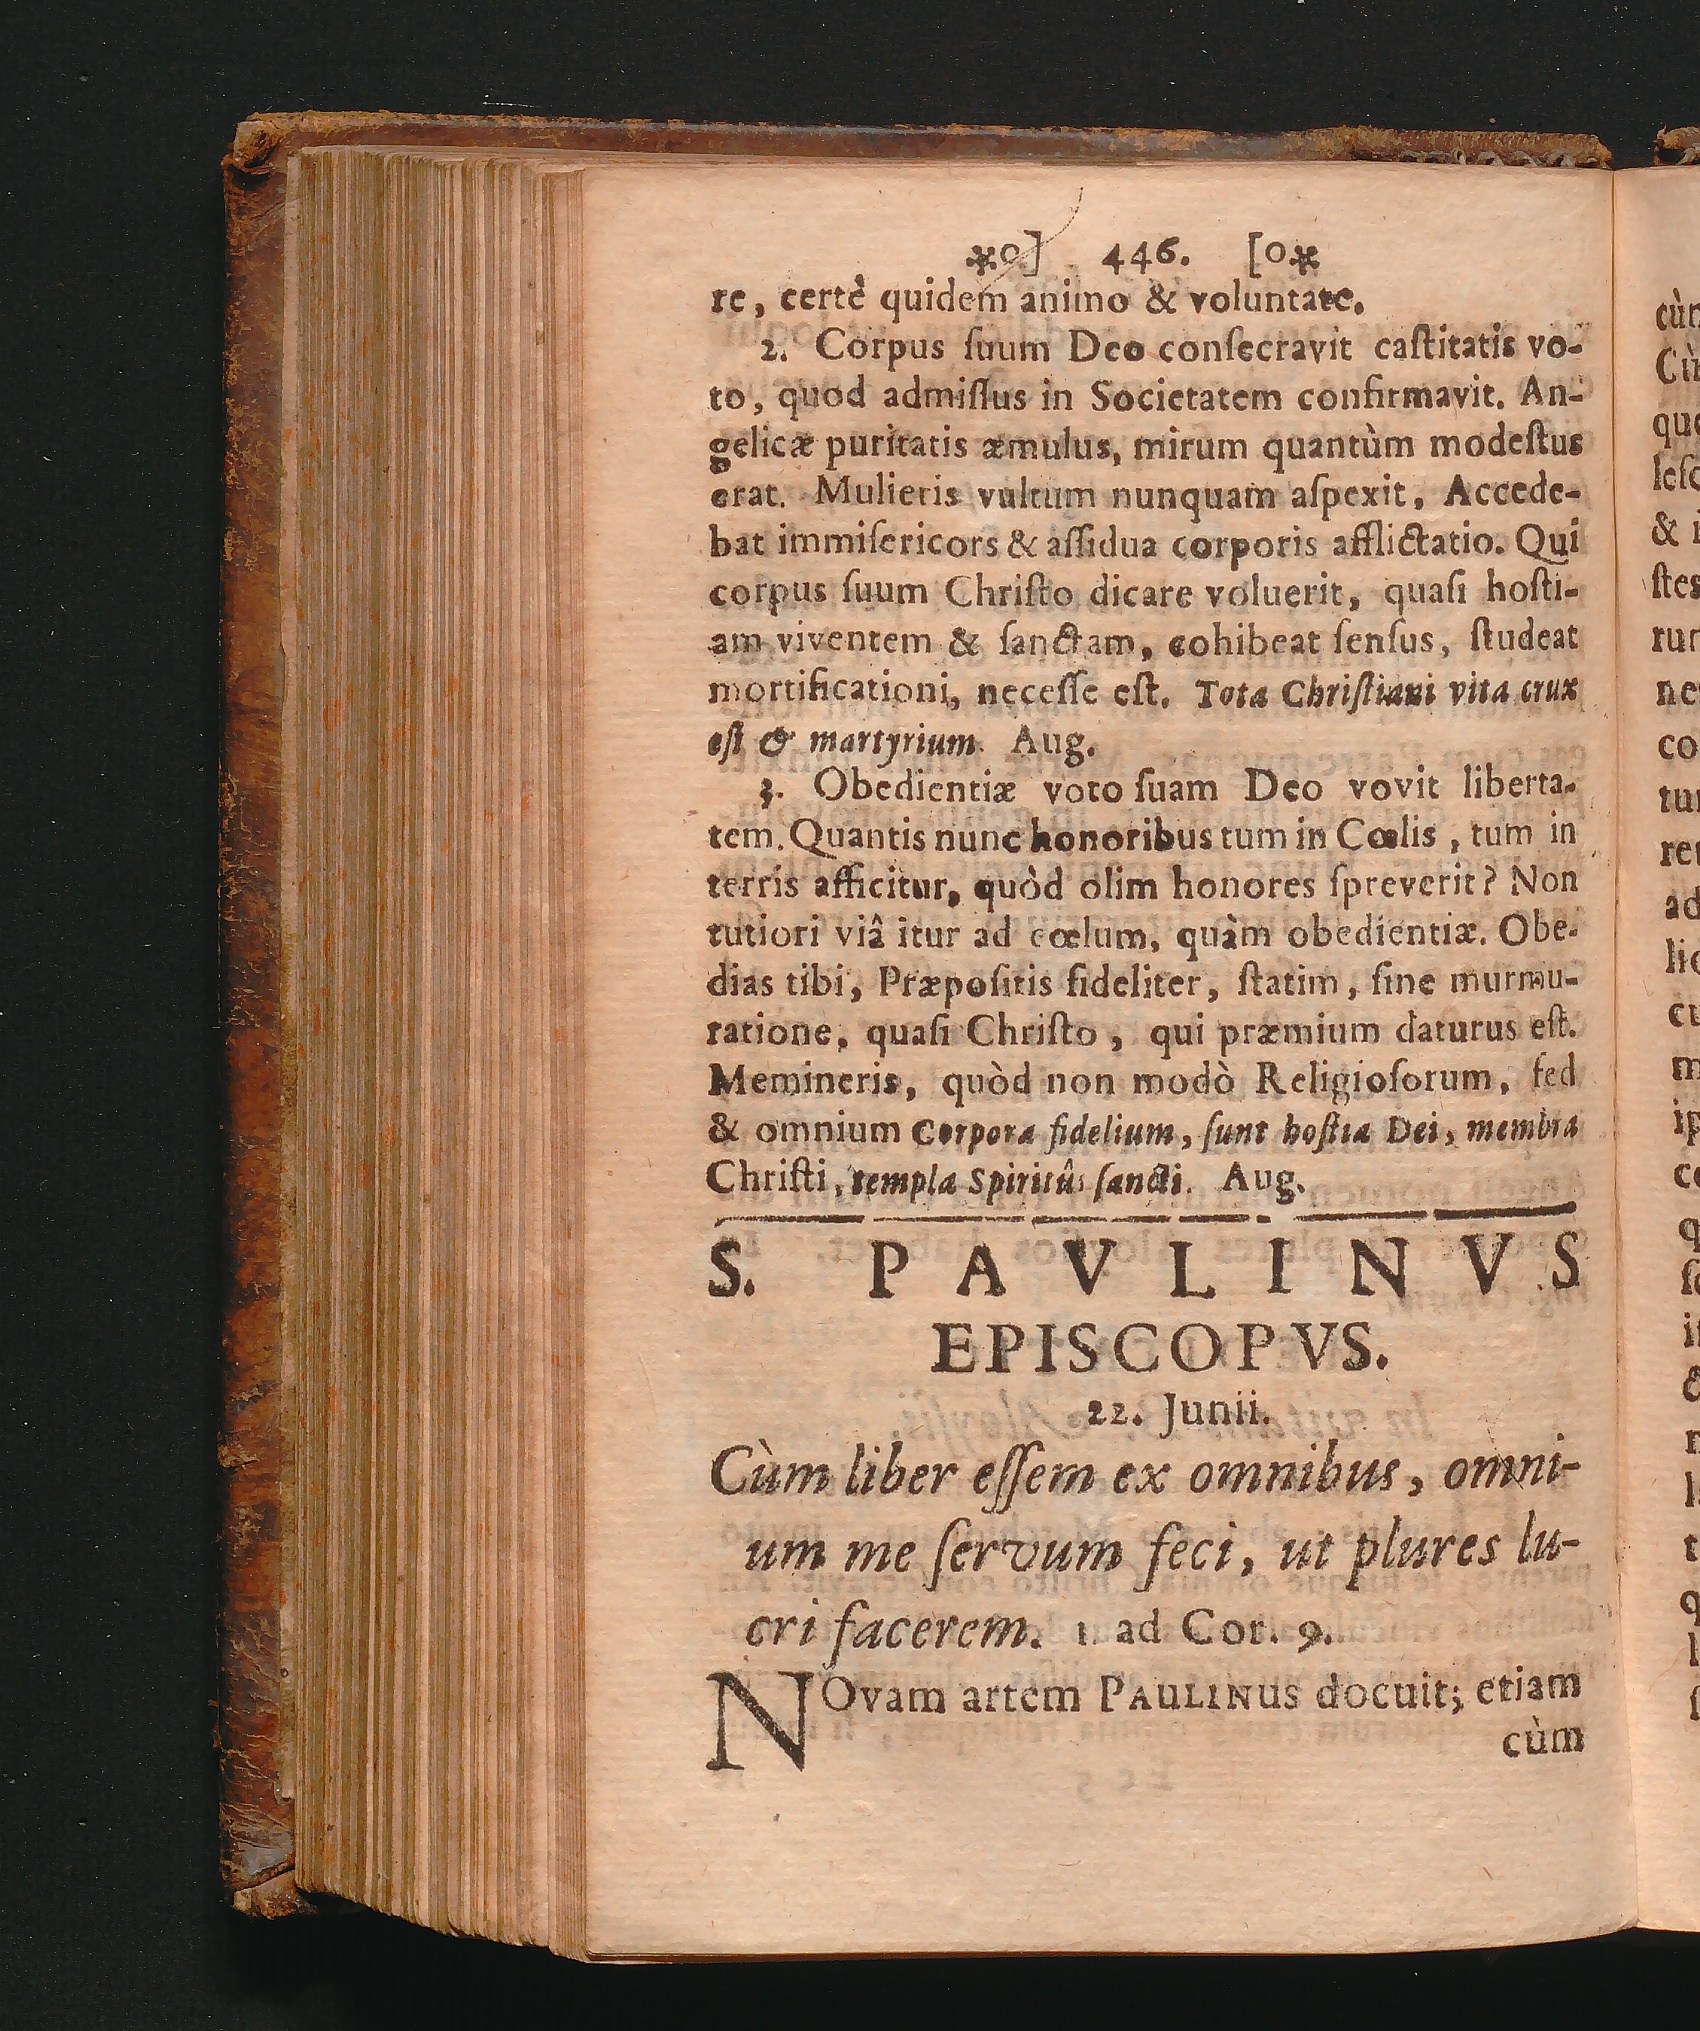 *o] 446. [o*
re, certè quidem animo & voluntate.
2. Corpus ſuum Deo conſecravit caſtitatis vo-
to, quod admiſſus in Societatem confirmavit. An-
gelicæ puritatis æmulus, mirum quantùm modeſtus
erat. Mulieris vultum nunquam aſpexit, Accede-
bat immiſericors & aſſidua corporis afflictatio. Qui
corpus ſuum Chriſto dicare voluerit, quaſi hoſti-
am viventem & ſanctam, cohibeat ſenſus, ſtudeat
mortificationi, neceſſe eſt. Tota Chriſtiani vita crux
eſt & martyrium. Aug.
3. Obedientiæ voto ſuam Deo vovit liberta-
tem. Quantis nunc honoribus tum in Cœlis, tum in
terris afficitur, quòd olim honores ſpreverit? Non
tutiori viâ itur ad cœlum, quàm obedientiæ. Obe-
dias tibi, Præpoſitis fideliter, ſtatim, ſine murmu-
ratione, quaſi Chriſto, qui præmium daturus eſt.
Memineris, quòd non modò Religioſorum, ſed
& omnium Corpora fidelium, ſunt hoſtia Dei, membra
Chriſti, templa Spiritûs ſancti. Aug.
S. PAVLINVS
EPISCOPVS.
22. Junii.
Cùm liber eſſem ex omnibus, omni-
um me ſervum feci, ut plures lu-
cri facerem. 1. ad Cor. 9.
NOvam artem PAULINUS docuit; etiam
cùm